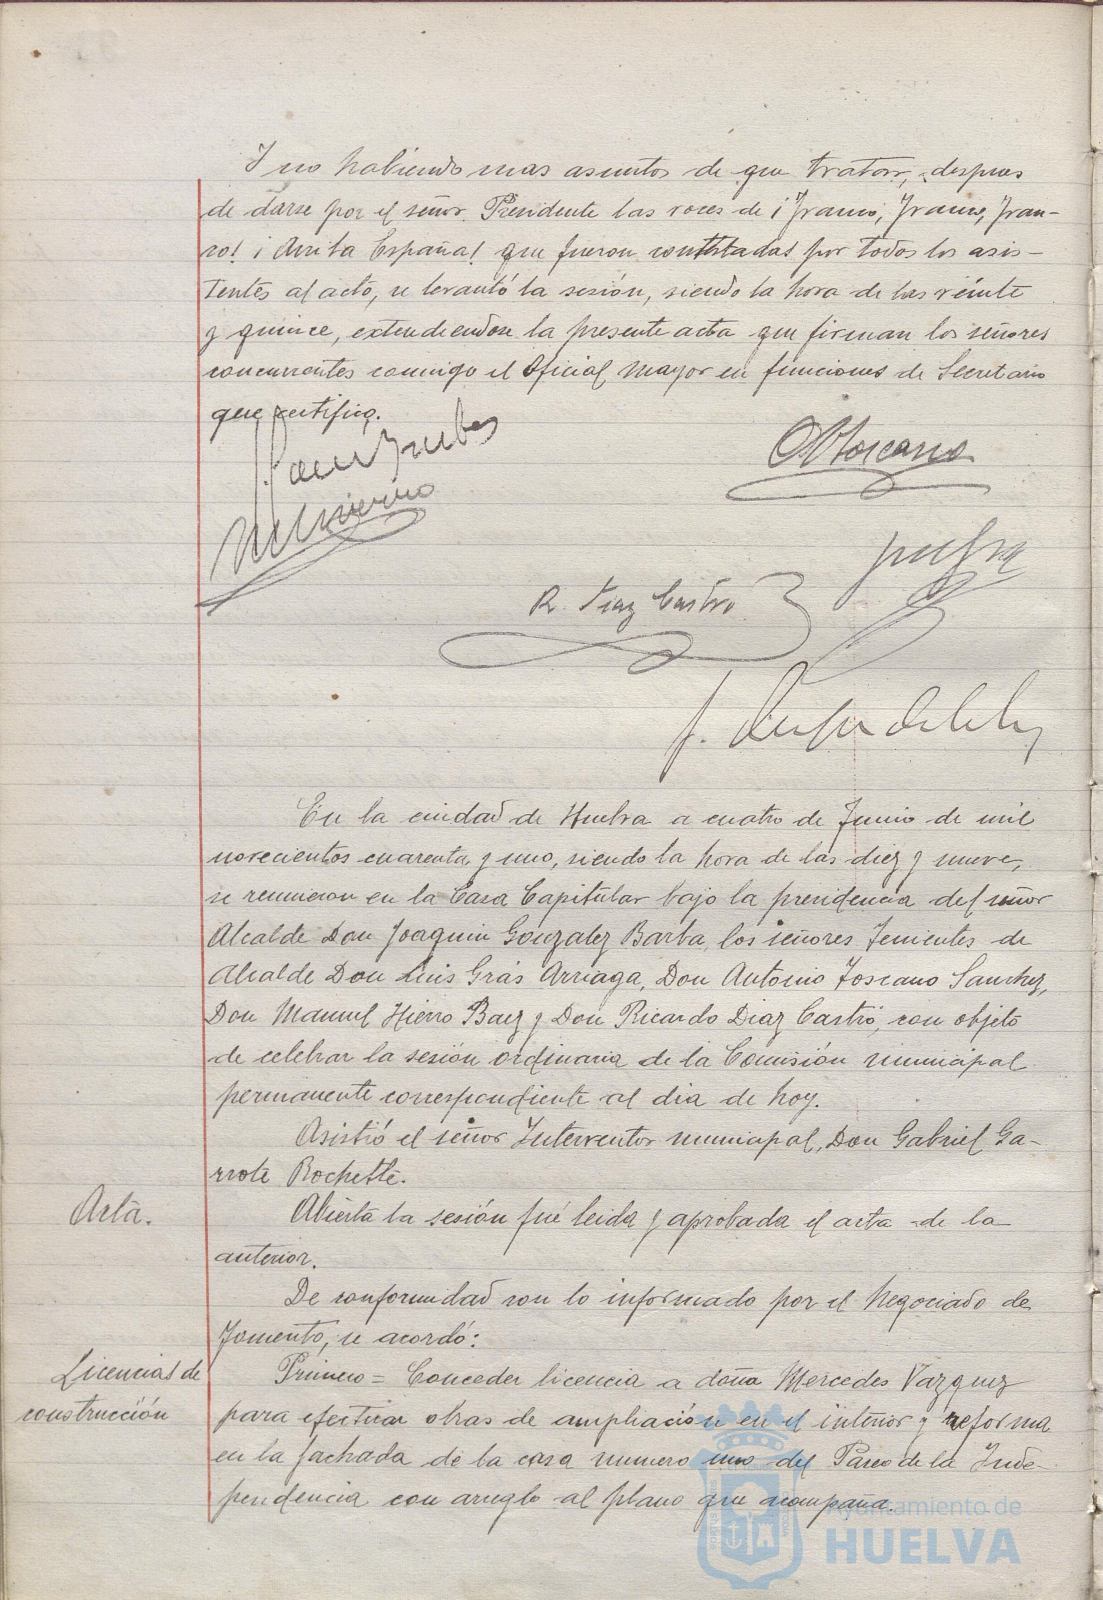 Y no habiendo mas asuntos de que tratar, despues
de darse por el señor Presidente las voces de ¡Franco, Franco, Fran-
co! ¡Arriba España! que fueron contestadas por todos los asis-
tentes al acto, se levantó la sesión, siendo la hora de las veinte
y quince, extendiendose la presente acta que firman los señores
concurrentes conmigo el Oficial Mayor en funciones de Secretario
que certifico.
Toscano
R. Diaz Castro
En la ciudad de Huelva a cuatro de Junio de mil
novecientos cuarenta y uno, siendo la hora de las diez y nueve,
se reunieron en la Casa Capitular bajo la presidencia del señor
Alcalde Don Joaquin Gonzalez Barba, los señores Tenientes de
Alcalde Don Luis Grás Arriaga, Don Antonio Toscano Sanchez,
Don Manuel Hierro Baez y Don Ricardo Diaz Castro, con objeto
de celebrar la sesión ordinaria de la Comisión municipal
permanente correspondiente al dia de hoy.
Asistió el señor Interventor municipal, Don Gabriel Ga-
rrote Rochette.
Acta.
Abierta la sesión fué leida y aprobada el acta de la
anterior.
De conformidad con lo informado por el Negociado de
Fomento, se acordó:
Licencias de
construcción
Primero = Conceder licencia a doña Mercedes Vazquez
para efectuar obras de ampliación en el interior y reforma
en la fachada de la casa numero uno del Paseo de la Inde-
pendencia con arreglo al plano que acompaña.
Ayuntamiento de
HUELVA